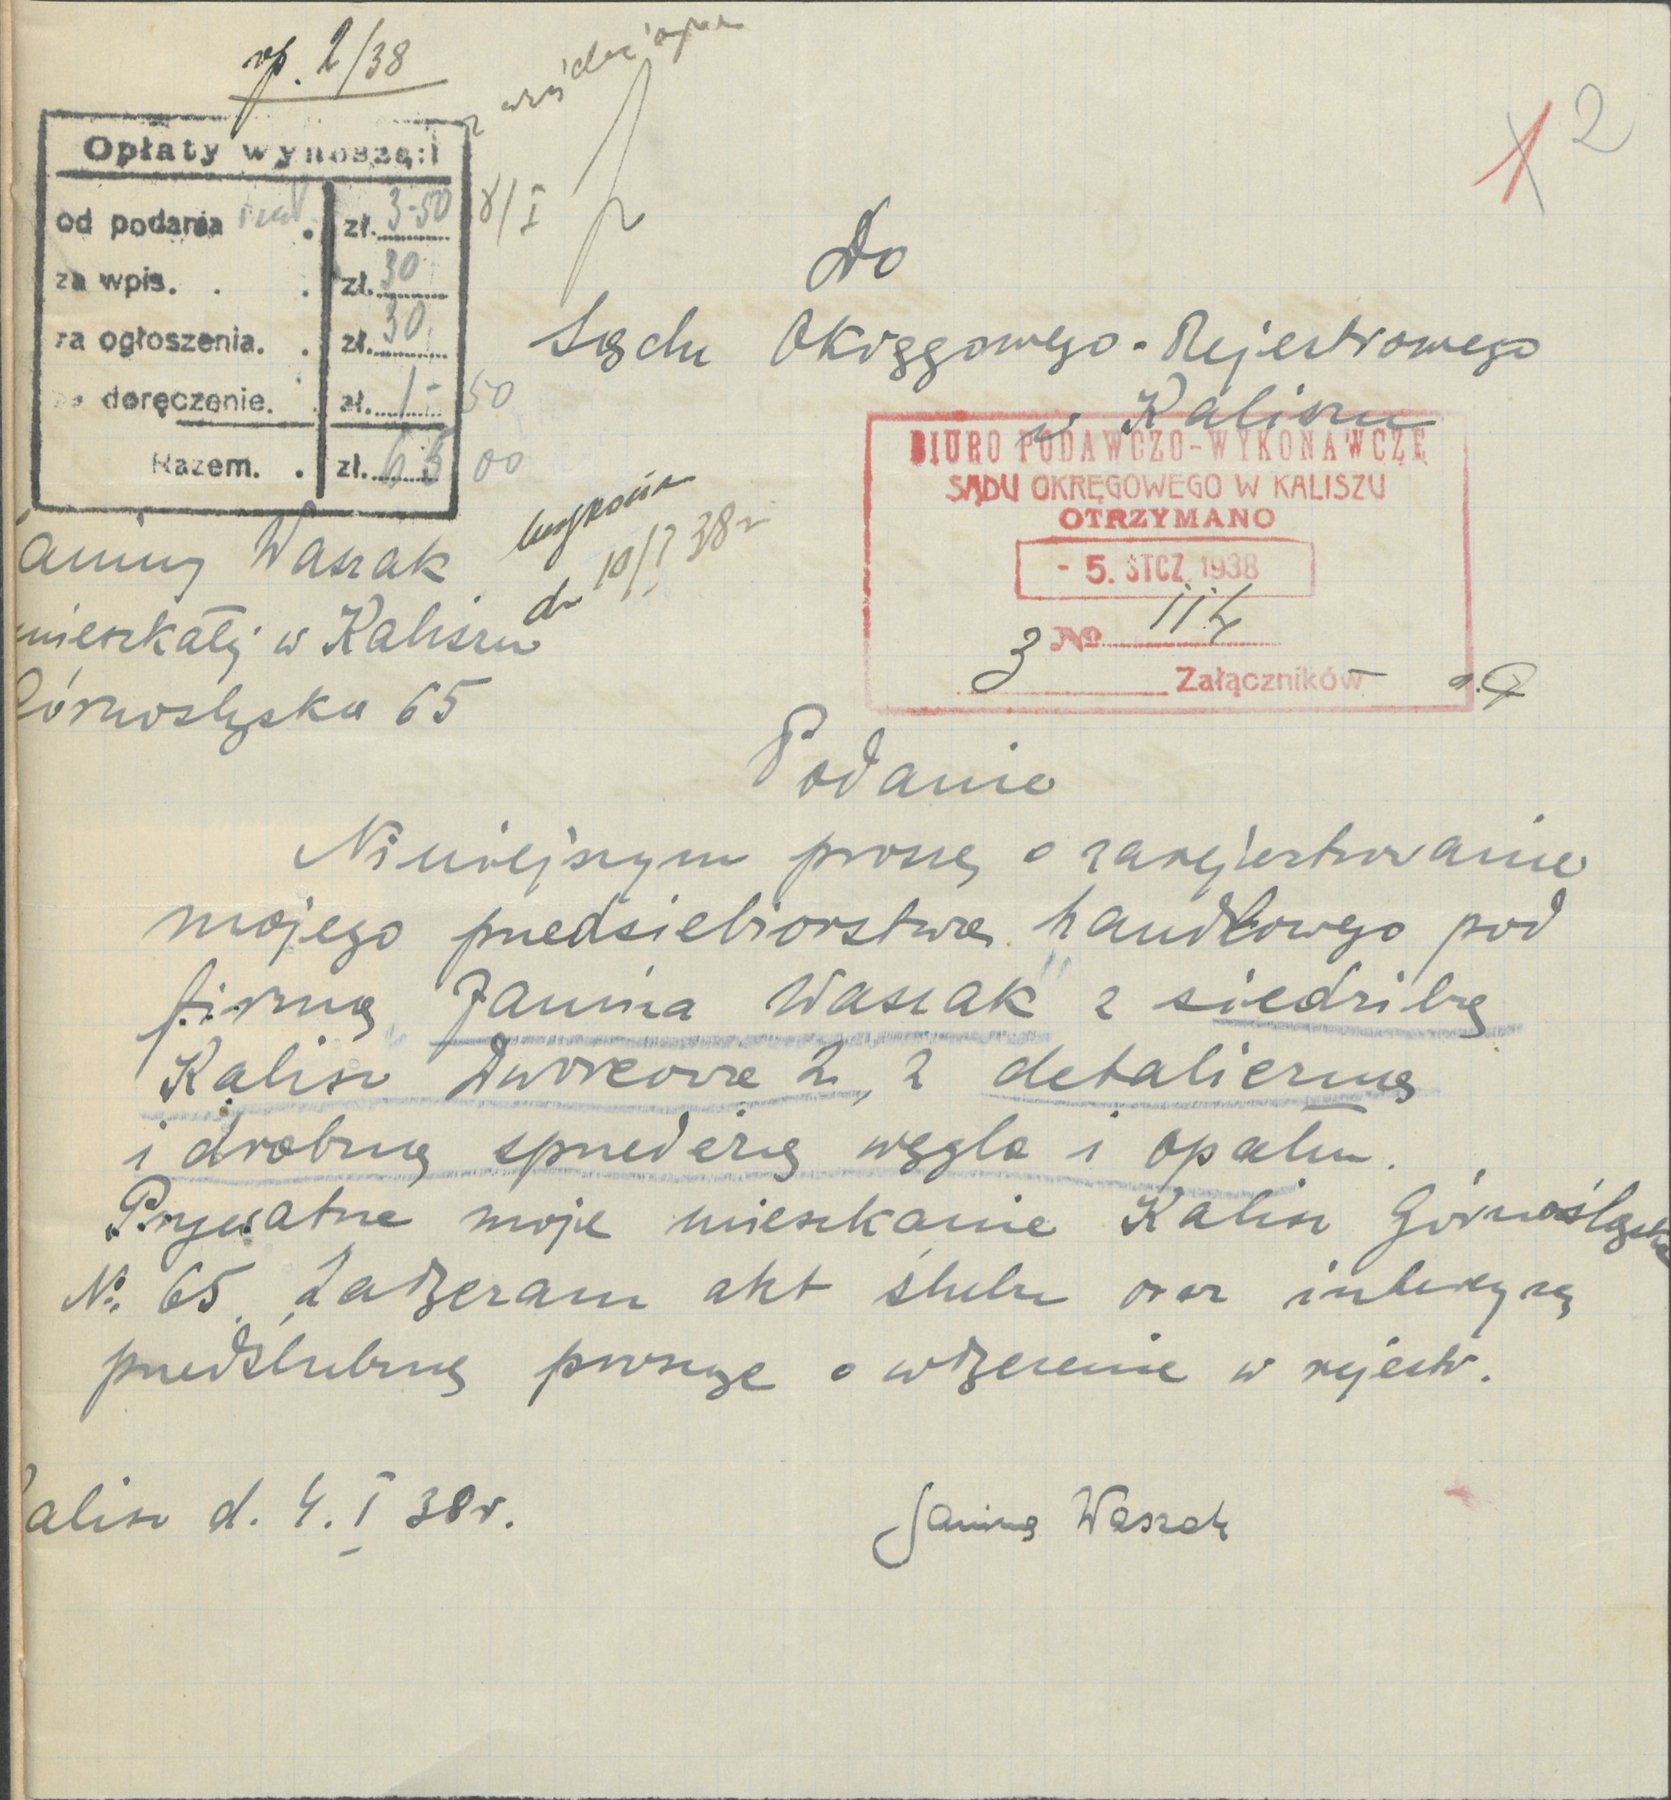 rp. 2/38
2
Opłaty wynoszą:
od podania . zł. 3-50
za wpis. . . zł. 30
za ogłoszenia. . zł. 30
doręczenie. . zł. 1-50
Razem. . zł. 65 00
8/I
Do
Sądu Okręgowego-Rejestrowego
w Kaliszu
BIURO PODAWCZO-WYKONAWCZE
SĄDU OKRĘGOWEGO W KALISZU
OTRZYMANO
- 5. STCZ. 1938
№ 114
3 Załączników
aniny Waszak
mieszkałej w Kaliszu
Górnośląska 65
dn 10/I 38 r
Podanie
Niniejszym proszę o zarejestrowanie
mojego przedsiebiorstwa handlowego pod
firmą "Janina Waszak" z siedzibą
Kalisz Dworcowa 2, z detaliczną
i drobną sprzedażą węgla i opału.
Prywatne moje mieszkanie Kalisz Górnośląska
No. 65. Załączam akt ślubu oraz intercyzę
przedślubną proszę o włączenie w rejestr.
alisz d. 4. I 38 r.
Janina Waszak